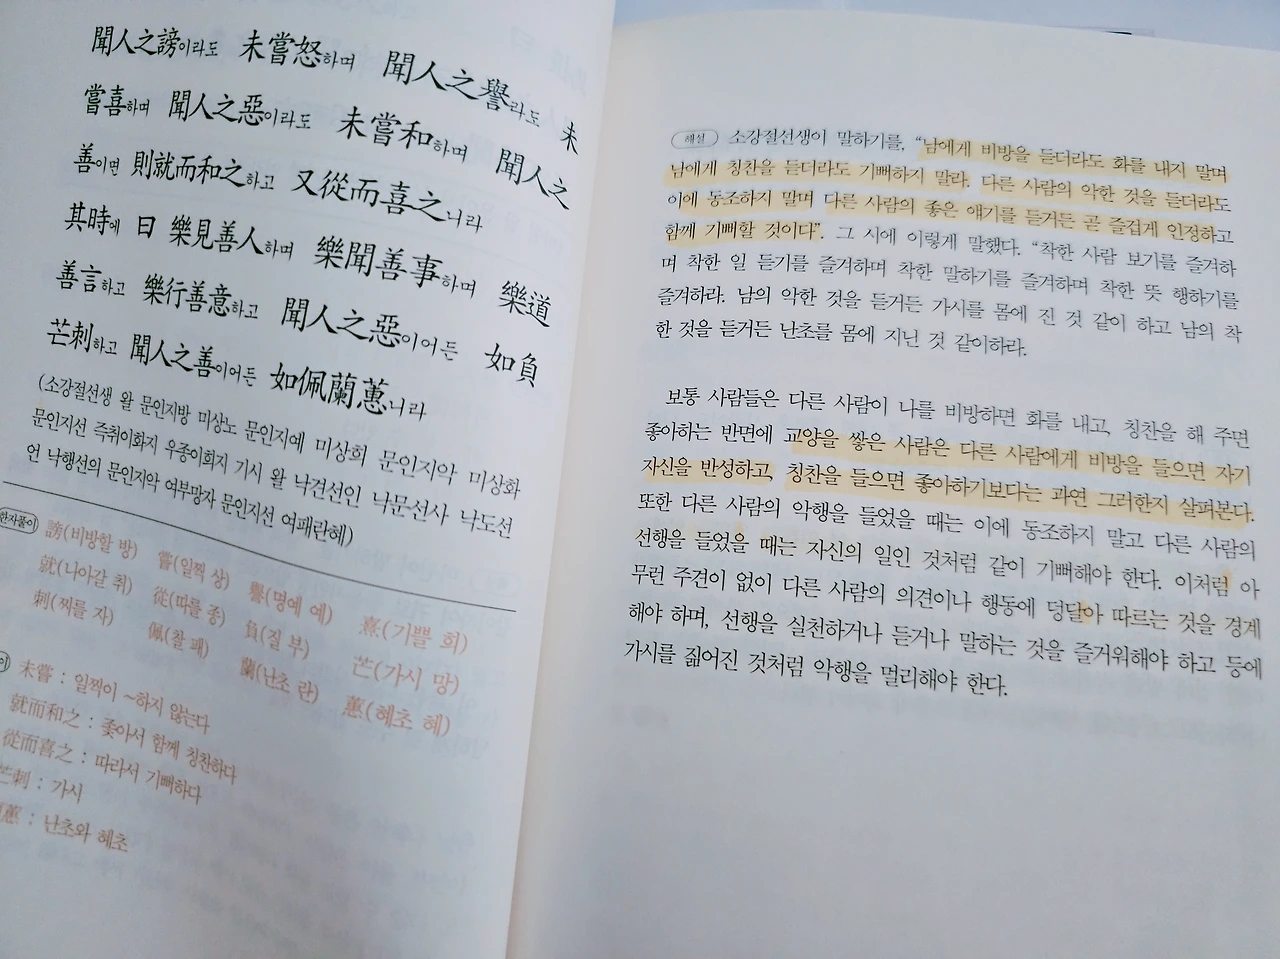 聞人之謗이라도 未嘗怒하며 聞人之譽라도 未
嘗喜하며 聞人之惡이라도 未嘗和하며 聞人之
善이면 則就而和之하고 又從而喜之니라
其時에 曰 樂見善人하며 樂聞善事하며 樂道
善言하고 樂行善意하고 聞人之惡이어든 如負
芒刺하고 聞人之善이어든 如佩蘭蕙니라
(소강절선생 왈 문인지방 미상노 문인지예 미상희 문인지악 미상화
문인지선 즉취이화지 우종이희지 기시 왈 낙견선인 낙문선사 낙도선
언 낙행선의 문인지악 여부망자 문인지선 여패란혜)
한자풀이
謗(비방할 방) 嘗(일찍 상) 譽(명예 예) 熹(기쁠 희)
就(나아갈 취) 從(따를 종) 負(질 부) 芒(가시 망)
刺(찌를 자) 佩(찰 패) 蘭(난초 란) 蕙(혜초 혜)
이
未嘗 : 일찍이 ~하지 않는다
就而和之 : 좇아서 함께 칭찬하다
從而喜之 : 따라서 기뻐하다
芒刺 : 가시
蕙 : 난초와 혜초
해설 소강절선생이 말하기를, “남에게 비방을 듣더라도 화를 내지 말며
남에게 칭찬을 듣더라도 기뻐하지 말라. 다른 사람의 악한 것을 듣더라도
이에 동조하지 말며 다른 사람의 좋은 얘기를 듣거든 곧 즐겁게 인정하고
함께 기뻐할 것이다”. 그 시에 이렇게 말했다. “착한 사람 보기를 즐겨하
며 착한 일 듣기를 즐겨하며 착한 말하기를 즐겨하며 착한 뜻 행하기를
즐겨하라. 남의 악한 것을 듣거든 가시를 몸에 진 것 같이 하고 남의 착
한 것을 듣거든 난초를 몸에 지닌 것 같이하라.
보통 사람들은 다른 사람이 나를 비방하면 화를 내고, 칭찬을 해 주면
좋아하는 반면에 교양을 쌓은 사람은 다른 사람에게 비방을 들으면 자기
자신을 반성하고, 칭찬을 들으면 좋아하기보다는 과연 그러한지 살펴본다.
또한 다른 사람의 악행을 들었을 때는 이에 동조하지 말고 다른 사람의
선행을 들었을 때는 자신의 일인 것처럼 같이 기뻐해야 한다. 이처럼 아
무런 주견이 없이 다른 사람의 의견이나 행동에 덩달아 따르는 것을 경계
해야 하며, 선행을 실천하거나 듣거나 말하는 것을 즐거워해야 하고 등에
가시를 짊어진 것처럼 악행을 멀리해야 한다.